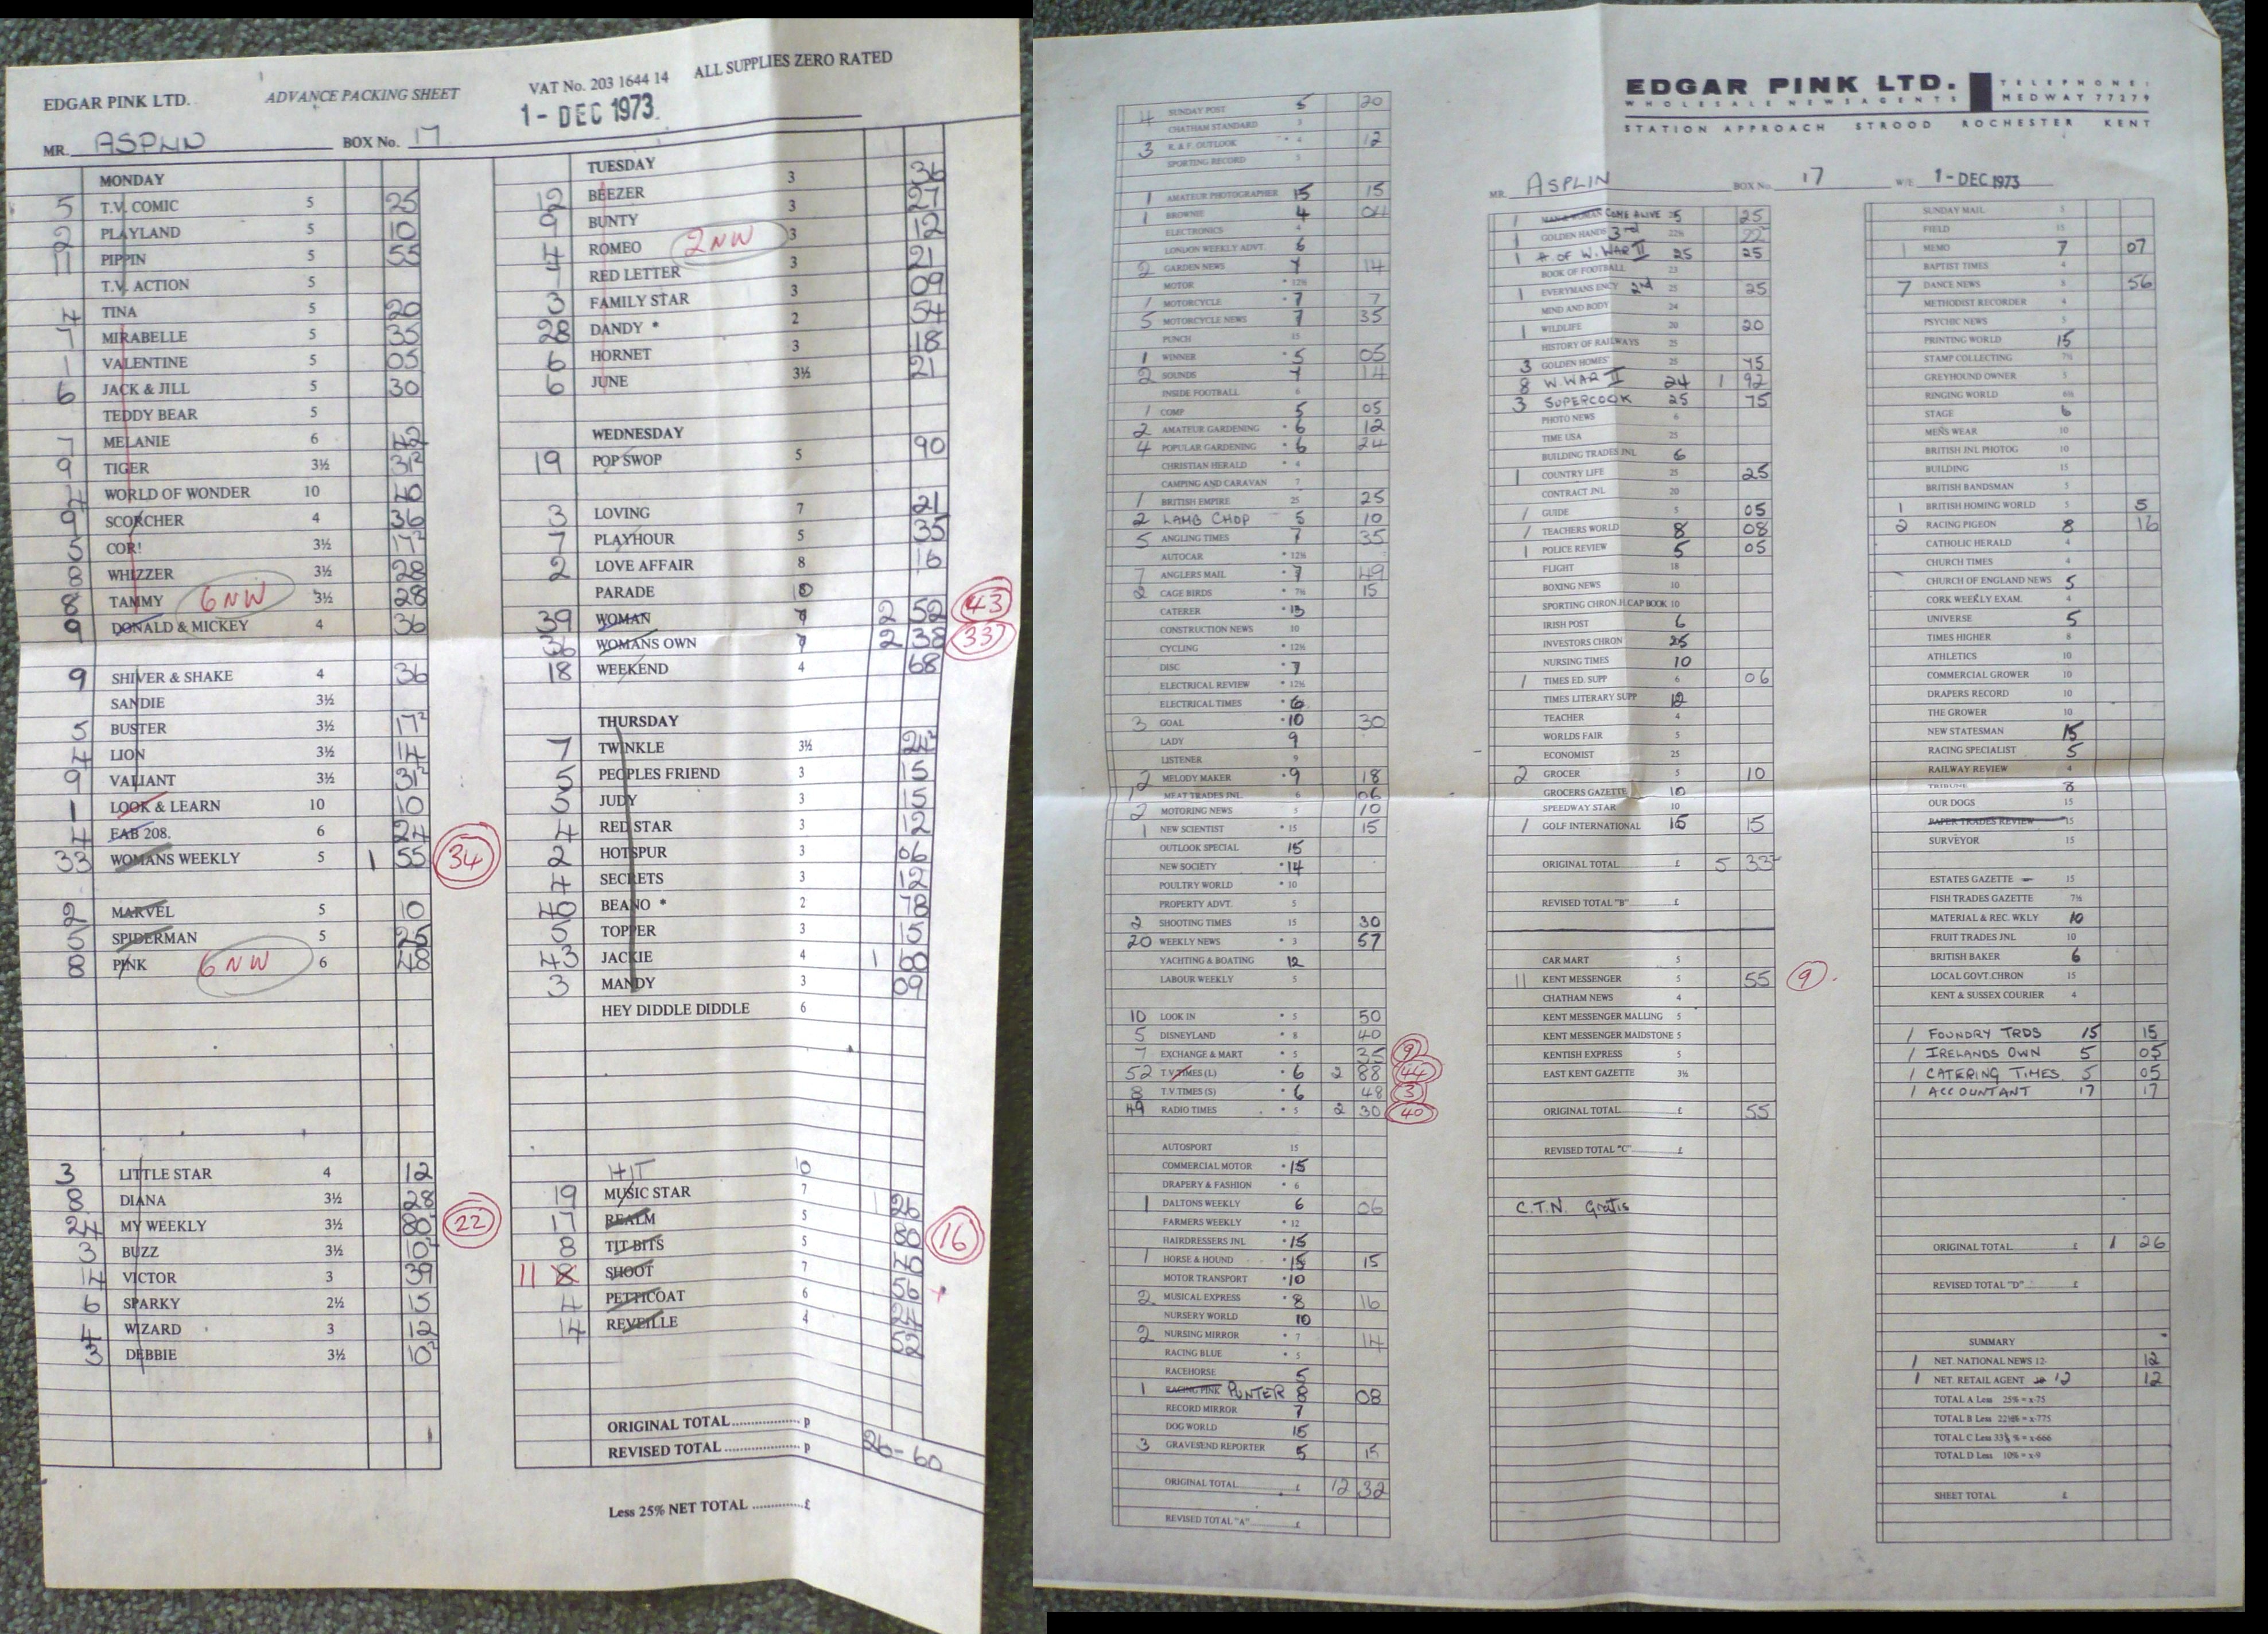 EDGAR PINK LTD. ADVANCE PACKING SHEET VAT No. 203 1644 14 ALL SUPPLIES ZERO RATED
1 - DEC 1973
MR. ASPLIN BOX No. 17
MONDAY
5 T.V. COMIC 5 25
2 PLAYLAND 5 10
11 PIPPIN 5 55
T.V. ACTION 5
4 TINA 5 20
7 MIRABELLE 5 35
1 VALENTINE 5 05
6 JACK & JILL 5 30
TEDDY BEAR 5
7 MELANIE 6 42
9 TIGER 3½ 31²
4 WORLD OF WONDER 10 40
9 SCORCHER 4 36
5 COR! 3½ 17²
8 WHIZZER 3½ 28
8 TAMMY 6 NW 3½ 28
9 DONALD & MICKEY 4 36
9 SHIVER & SHAKE 4 36
SANDIE 3½
5 BUSTER 3½ 17²
4 LION 3½ 14
9 VALIANT 3½ 31²
1 LOOK & LEARN 10 10
4 FAB 208. 6 24
33 WOMANS WEEKLY 5 1 55 34
2 MARVEL 5 10
5 SPIDERMAN 5 25
8 PINK 6 NW 6 48
3 LITTLE STAR 4 12
8 DIANA 3½ 28
24 MY WEEKLY 3½ 80² 22
3 BUZZ 3½ 10²
14 VICTOR 3 39
6 SPARKY 2½ 15
4 WIZARD 3 12
3 DEBBIE 3½ 10²
TUESDAY
12 BEEZER 3 36
9 BUNTY 3 27
4 ROMEO 2 NW 3 12
7 RED LETTER 3 21
3 FAMILY STAR 3 09
28 DANDY * 2 54
6 HORNET 3 18
6 JUNE 3½ 21
WEDNESDAY
19 POP SWOP 5 90
3 LOVING 7 21
7 PLAYHOUR 5 35
2 LOVE AFFAIR 8 16
PARADE 10
39 WOMAN 7 2 52 43
36 WOMANS OWN 7 2 38 33
18 WEEKEND 4 68
THURSDAY
7 TWINKLE 3½ 24²
5 PEOPLES FRIEND 3 15
5 JUDY 3 15
4 RED STAR 3 12
2 HOTSPUR 3 06
4 SECRETS 3 12
40 BEANO * 2 78
5 TOPPER 3 15
43 JACKIE 4 1 60
3 MANDY 3 09
HEY DIDDLE DIDDLE 6
HIT 10
19 MUSIC STAR 7 1 26
17 REALM 5 80 16
8 TIT-BITS 5 40
11 8 SHOOT 7 56
4 PETTICOAT 6 24
14 REVEILLE 4 52
ORIGINAL TOTAL p
REVISED TOTAL p 26-60
Less 25% NET TOTAL £
EDGAR PINK LTD. TELEPHONE:
WHOLESALE NEWSAGENTS MEDWAY 77279
STATION APPROACH STROOD ROCHESTER KENT
MR. ASPLIN BOX No. 17 W/E 1 - DEC 1973
4 SUNDAY POST 5 20
CHATHAM STANDARD 3
3 R. & F. OUTLOOK * 4 12
SPORTING RECORD 5
1 AMATEUR PHOTOGRAPHER 15 15
1 BROWNIE 4 04
ELECTRONICS 4
LONDON WEEKLY ADVT. 6
2 GARDEN NEWS 7 14
MOTOR * 12½
1 MOTORCYCLE * 7 7
5 MOTORCYCLE NEWS 7 35
PUNCH 15
1 WINNER * 5 05
2 SOUNDS 7 14
INSIDE FOOTBALL 6
1 COMP 5 05
2 AMATEUR GARDENING * 6 12
4 POPULAR GARDENING * 6 24
CHRISTIAN HERALD * 4
CAMPING AND CARAVAN 7
1 BRITISH EMPIRE 25 25
2 LAMB CHOP 5 10
5 ANGLING TIMES 7 35
AUTOCAR * 12½
7 ANGLERS MAIL * 7 49
2 CAGE BIRDS * 7½ 15
CATERER * 13
CONSTRUCTION NEWS 10
CYCLING * 12½
DISC * 7
ELECTRICAL REVIEW * 12½
ELECTRICAL TIMES * 6
3 GOAL * 10 30
LADY 9
LISTENER 9
2 MELODY MAKER * 9 18
1 MEAT TRADES JNL. 6 06
2 MOTORING NEWS 5 10
1 NEW SCIENTIST * 15 15
OUTLOOK SPECIAL 15
NEW SOCIETY * 14
POULTRY WORLD * 10
PROPERTY ADVT. 5
2 SHOOTING TIMES 15 30
20 WEEKLY NEWS * 3 57
YACHTING & BOATING 12
LABOUR WEEKLY 5
10 LOOK IN * 5 50
5 DISNEYLAND * 8 40
7 EXCHANGE & MART * 5 35 9
52 T.V TIMES (L) * 6 2 88 44
8 T.V TIMES (S) * 6 48 3
49 RADIO TIMES * 5 2 30 40
AUTOSPORT 15
COMMERCIAL MOTOR * 15
DRAPERY & FASHION * 6
1 DALTONS WEEKLY 6 06
FARMERS WEEKLY * 12
HAIRDRESSERS JNL * 15
1 HORSE & HOUND * 15 15
MOTOR TRANSPORT * 10
2 MUSICAL EXPRESS * 8 16
NURSERY WORLD 10
2 NURSING MIRROR * 7 14
RACING BLUE * 5
RACEHORSE 5
1 RACING PINK PUNTER 8 08
RECORD MIRROR 7
DOG WORLD 15
3 GRAVESEND REPORTER 5 15
ORIGINAL TOTAL £ 12 32
REVISED TOTAL "A" £
1 COME ALIVE 25 25
1 GOLDEN HANDS 3rd 22½ 22²
1 H OF W. WAR II 25 25
BOOK OF FOOTBALL 23
1 EVERYMANS ENCY 2nd 25 25
MIND AND BODY 24
1 WILDLIFE 20 20
HISTORY OF RAILWAYS 25
3 GOLDEN HOMES 25 75
8 W. WAR II 24 1 92
3 SUPERCOOK 25 75
PHOTO NEWS 6
TIME USA 25
BUILDING TRADES JNL 6
1 COUNTRY LIFE 25 25
CONTRACT JNL 20
1 GUIDE 5 05
1 TEACHERS WORLD 8 08
1 POLICE REVIEW 5 05
FLIGHT 18
BOXING NEWS 10
SPORTING CHRON.H.CAP BOOK 10
IRISH POST 6
INVESTORS CHRON 25
NURSING TIMES 10
1 TIMES ED. SUPP 6 06
TIMES LITERARY SUPP 12
TEACHER 4
WORLDS FAIR 5
ECONOMIST 25
2 GROCER 5 10
GROCERS GAZETTE 10
SPEEDWAY STAR 10
1 GOLF INTERNATIONAL 15 15
ORIGINAL TOTAL £ 5 33²
REVISED TOTAL "B" £
CAR MART 5
11 KENT MESSENGER 5 55 9
CHATHAM NEWS 4
KENT MESSENGER MALLING 5
KENT MESSENGER MAIDSTONE 5
KENTISH EXPRESS 5
EAST KENT GAZETTE 3½
ORIGINAL TOTAL £ 55
REVISED TOTAL "C" £
C.T.N. Gratis
SUNDAY MAIL 5
FIELD 15
1 MEMO 7 07
BAPTIST TIMES 4
7 DANCE NEWS 8 56
METHODIST RECORDER 4
PSYCHIC NEWS 5
PRINTING WORLD 15
STAMP COLLECTING 7½
GREYHOUND OWNER 5
RINGING WORLD 6½
STAGE 6
MENS WEAR 10
BRITISH JNL PHOTOG 10
BUILDING 15
BRITISH BANDSMAN 5
1 BRITISH HOMING WORLD 5 5
2 RACING PIGEON 8 16
CATHOLIC HERALD 4
CHURCH TIMES 4
CHURCH OF ENGLAND NEWS 5
CORK WEEKLY EXAM. 4
UNIVERSE 5
TIMES HIGHER 8
ATHLETICS 10
COMMERCIAL GROWER 10
DRAPERS RECORD 10
THE GROWER 10
NEW STATESMAN 15
RACING SPECIALIST 5
RAILWAY REVIEW 4
TRIBUNE 8
OUR DOGS 15
PAPER TRADES REVIEW 15
SURVEYOR 15
ESTATES GAZETTE 15
FISH TRADES GAZETTE 7½
MATERIAL & REC. WKLY 10
FRUIT TRADES JNL 10
BRITISH BAKER 6
LOCAL GOVT.CHRON 15
KENT & SUSSEX COURIER 4
1 FOUNDRY TRDS 15 15
1 IRELANDS OWN 5 05
1 CATERING TIMES 5 05
1 ACCOUNTANT 17 17
ORIGINAL TOTAL £ 1 26
REVISED TOTAL "D" £
SUMMARY
1 NET. NATIONAL NEWS 12 12
1 NET. RETAIL AGENT 12 12
TOTAL A Less 25% = x·75
TOTAL B Less 22½% = x·775
TOTAL C Less 33⅓ % = x·666
TOTAL D Less 10% = x·9
SHEET TOTAL £